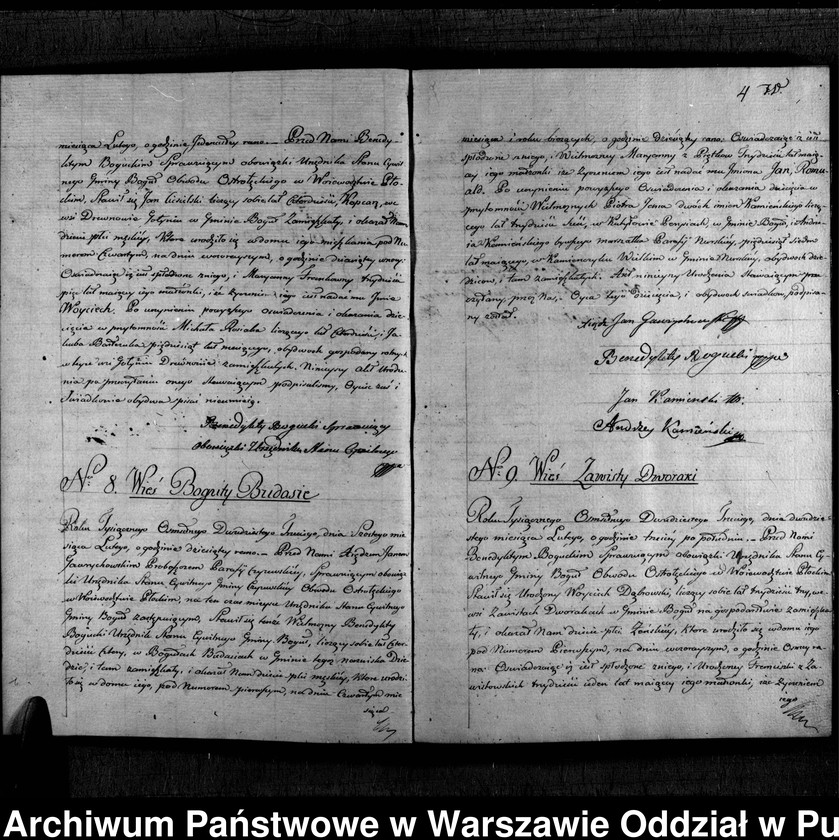 miesiąca Lutego, o godzinie Jedenastey rano. Przed Nami Benedy-
ktym Boguckim Sprawuiącym obowiązki Urzędnika Stanu Cywil-
nego Gminy Bogut Obwodu Ostrołęckiego w Woiewodztwie Pło-
ckim, Stawił się Jan liczący sobie lat Czterdzieści, we
wsi Drewnowie Gołyniu w Gminie Bogut Zamieszkały, i okazał Nam
dziecie płci męzkiey, które urodziło się w domu iego mieszkania pod Nu-
merem Czwartym, na dniu wczorayszym, o godzinie
Oswiadczaiąc iż iest spłodzone z niego, i Maryanny trzydzieści
pięć lat maiący iego małżonki, i że życzeniem iego iest nadać mu Imie
Woyciech. Po uczynieniu powyższego oswiadczenia i okazania dzie-
cięcia w przytomności Michała liczącego lat Czterdzieści, i Ja-
kuba pięćdziesiąt lat maiącego, obydwóch gospodarzy
w teyże wsi Gołyniu Drewnowie zamieszkałych. Ninieyszy Akt Urodze-
nia po przeczytaniu onego Stawaiącym podpisaliśmy, Oyciec zaś i
Swiadkowie obydwa pisać nieumieią.
Benedykty Bogucki Sprawuiący
obowiązki Urzędnika Stanu Cywilnego
No 8. Wieś Boguty Budasie
Roku Tysiącznego Osmsetnego Dwudziestego Trzeciego, dnia Szostego mie-
siąca Lutego, o godzinie dziesiątey rano. Przed Nami Xiędzem Janem
Gawrychowskim Proboszczem Parafii Czyżewskiey, Sprawuiącym obowią-
zki Urzędnika Stanu Cywilnego Gminy Czyżewskiey Obwodu Ostrołęckiego
w Woiewodztwie Płockim, na ten czas mieysce Urzędnika Stanu Cywilnego
Gminy Bogut zastępuiącym, Stawił się tenże Wielmożny Benedykty
Bogucki Urzędnik Stanu Cywilnego Gminy Bogut, liczący sobie lat Czter-
dzieści Cztery, w Bogutach Budasiach w Gminie tegoż nazwiska Dzie-
dzic, i tam zamieszkały, i okazał Nam dziecie płci męzkiey, które urodzi-
ło się w domu iego, pod Numerem pierwszym, na dniu Czwartym mie-
siąca
4
miesiąca i roku bieżących, o godzinie Dziewiątey rano. Oswiadczaiąc iż iest
spłodzone z niego, i Wielmożney Maryanny z Trzydzieści lat maią-
cy iego małżonki iż życzeniem iego iest nadać mu Imiona Jan, Romu-
ald. Po uczynieniu powyższego Oswiadczenia i okazania dziecięcia w
przytomności Wielmożnych Piotra Jana dwóch imion Kamieńskiego liczą-
cego lat trzydzieści w Gminie Bogut, i Andrze-
ia Kamieńskiego byłego marszałka Parafii Nurskiey, pięćdziesiąt siedm
lat maiącego, w Kamieńczyku Wielkim w Gminie Nurskiey, obydwóch dzie-
dziców, i tam zamieszkałych. Akt ninieyszy Urodzenia Stawaiącym prze-
czytany, przez Nas, Oyca tegoż Dziecięcia, i obydwóch świadków podpisa-
ny został.
Xiądz Jan Gawrychowski
Benedykty Bogucki
Jan Kamienski
Andrzey Kamieński
No 9. Wieś Zawisty Dworaki
Roku Tysiącznego Osmsetnego Dwudziestego Trzeciego, dnia dwudzie-
stego miesiąca Lutego, o godzinie trzeciey po południu. Przed Nami
Benedyktym Boguckim Sprawuiącym obowiązki Urzędnika Stanu Cy-
wilnego Gminy Bogut Obwodu Ostrołęckiego w Woiewodztwie Płockim
Stawił się Urodzony Woyciech Dąbrowski, liczący sobie lat trzydzieści trzy, we
wsi Zawistach Dworakach w Gminie Bogut na gospodarstwie zamieszka-
ły, i okazał Nam dziecie płci Żeńskiey, które urodziło się w domu iego
pod Numerem Pierwszym, na dniu wczorayszym, o godzinie Osmey ra-
no. Oswiadczaiąc iż iest spłodzone z niego, i Urodzoney Franciszki z Za-
wistowskich trzydzieści ieden lat maiącey iego małżonki, i że życzeniem
iego
Archiwum Państwowe w Warszawie Oddział w Pu